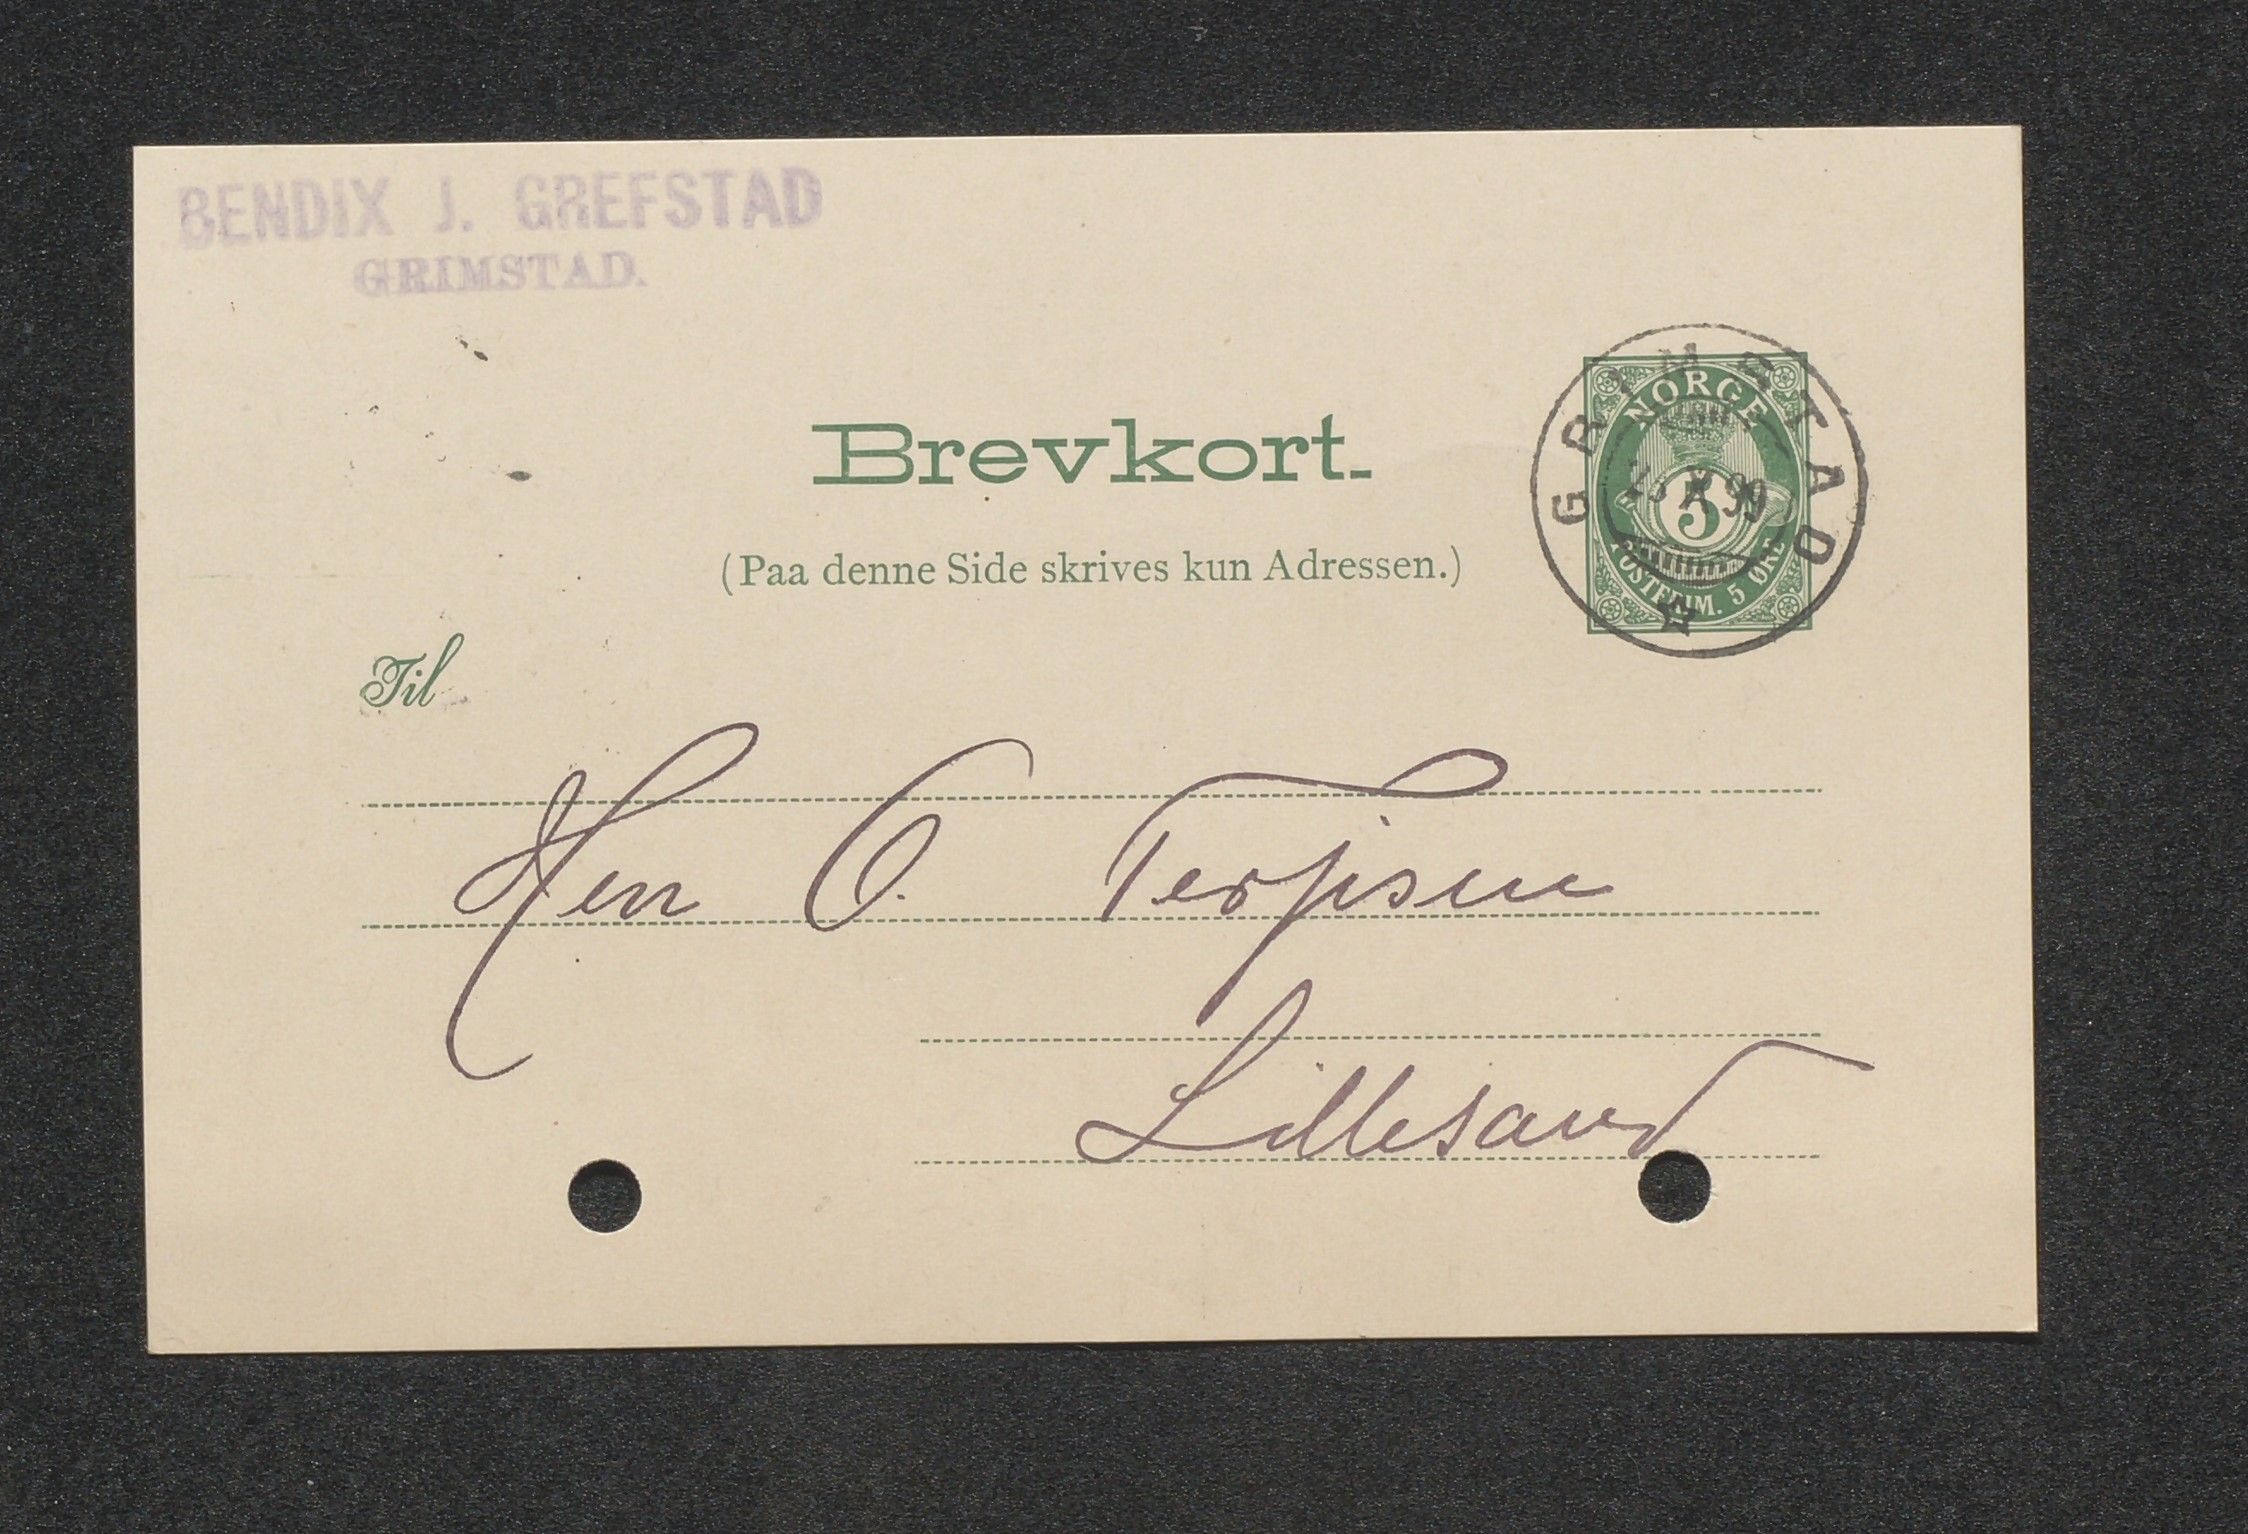 BENDIX J. GREFSTAD
GRIMSTAD.
Brevkort.
(Paa denne Side skrives kun Adressen.)
GRIMSTAD
99
NORGE
5
POSTFRIM. 5 ØRE
Til
Herr O. Terjisen
Lillesand